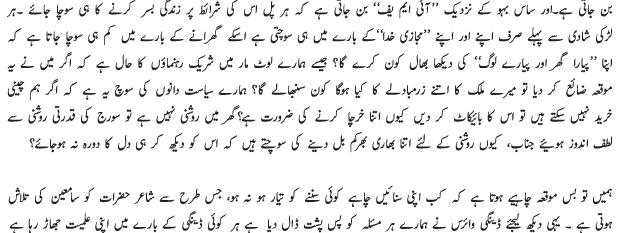 بن جاتی ہے۔اور ساس بہو کے نزدیک ’’آئی ایم یف‘‘ بن جاتی ہے کہ ہر پل اس کی شرائط پر زندگی بسر کرنے کا ہی سوچا جائے ۔ہر
لڑکی شادی سے پہلے صرف اپنے اور اپنے ’’مجازی خدا‘‘کے بارے میں ہی سوچتی ہے اسکے گھرانے کے بارے میں کم ہی سوچا جاتا ہے کہ
اپنا ’’پیارا گھر اور پیارے لوگ‘‘ کی دیکھا بھال کون کرے گا؟ جیسے ہمارے لوٹ مار میں شریک رہنماؤں کا حال ہے کہ اگر میں نے یہ
موقعہ ضائع کر دیا تو میرے ملک کا اتنے زرمبادلے کا کیا ہوگا کون سنبھالے گا؟ ہمارے سیاست دانوں کی سوچ یہ ہے کہ اگر ہم چینی
خرید نہیں سکتے ہیں تو اس کا بائیکاٹ کر دیں کیوں اتنا خرچا کرنے کی ضرورت ہے؟گھر میں روشنی نہیں ہے تو سورج کی قدرتی روشنی سے
لطف اندوز ہویئے جناب، کیوں روشنی کے لئے اتنا بھاری بھرکم بل دینے کی سوچتے ہیں کہ اس کو دیکھ کر ہی دل کا دورہ نہ ہوجائے؟
ہمیں تو بس موقعہ چاہیے ہوتا ہے کہ کب اپنی سنائیں چاہے کوئی سننے کو تیار ہو نہ ہو، جس طرح سے شاعر حضرات کو سامعین کی تلاش
ہوتی ہے ۔ یہی دیکھ لیجئے ڈینگی وائرس نے ہمارے ہر مسئلہ کو پس پشت ڈال دیا ہے ہر کوئی ڈینگی کے بارے میں اپنی علمیت جھاڑ رہا ہے